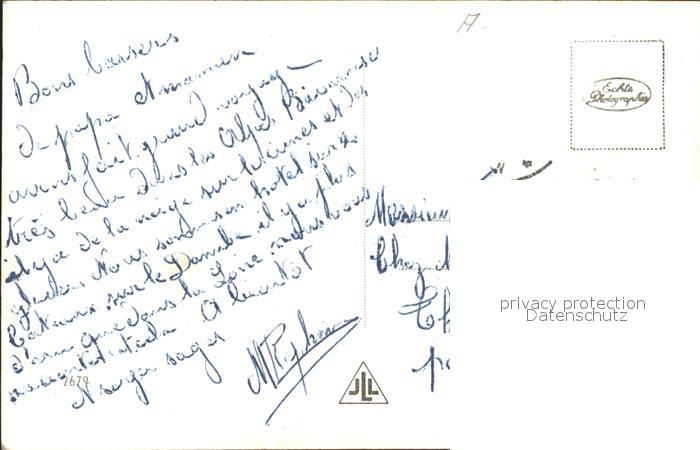 Bons baisers
de papa et maman
avons fait grand voyage
très beau dans les Alpes Bavaroises
il y a de la neige sur les cimes et des
Nous sommes en hotel sur le
bateaux sur le Danube il y a plus
d'eau que dans la Loire nous vous
A bientôt
soyez sages
2679
JLL
A-
Echte
Photographie
Monsieur
Chez
privacy protection
Datenschutz